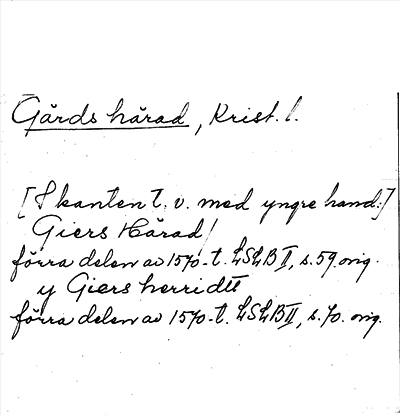 Gärds härad, Krist. l.
[I kanten t. v. med yngre hand:]
Giers Härad/
förra delen av 1570-t. LSLB II, s. 59. orig.
y Giers herridtt
förra delen av 1570-t. LSLB II, s. 70. orig.